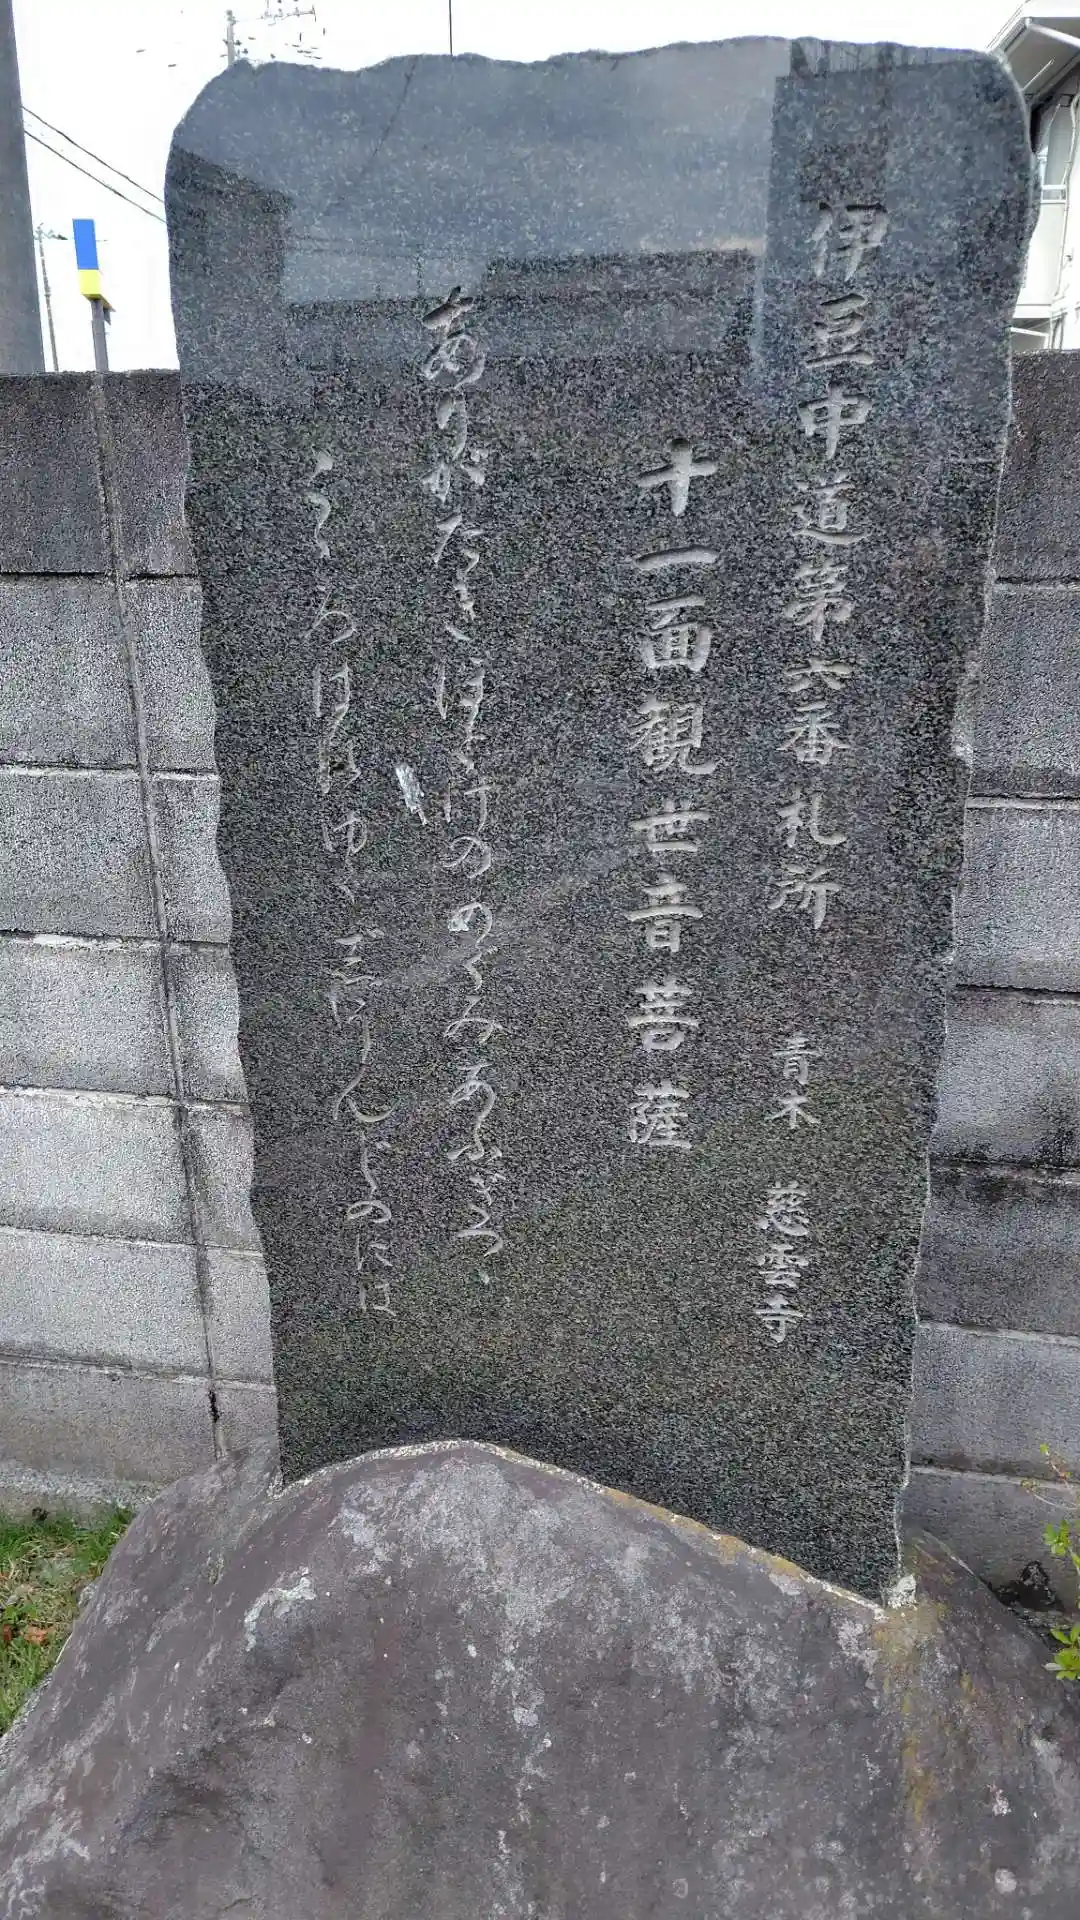 伊豆中道第六番札所 青木 慈雲寺
十一面観世音菩薩
ありがたきほとけのめぐみあふぎつゝ
こゝろは んじのには